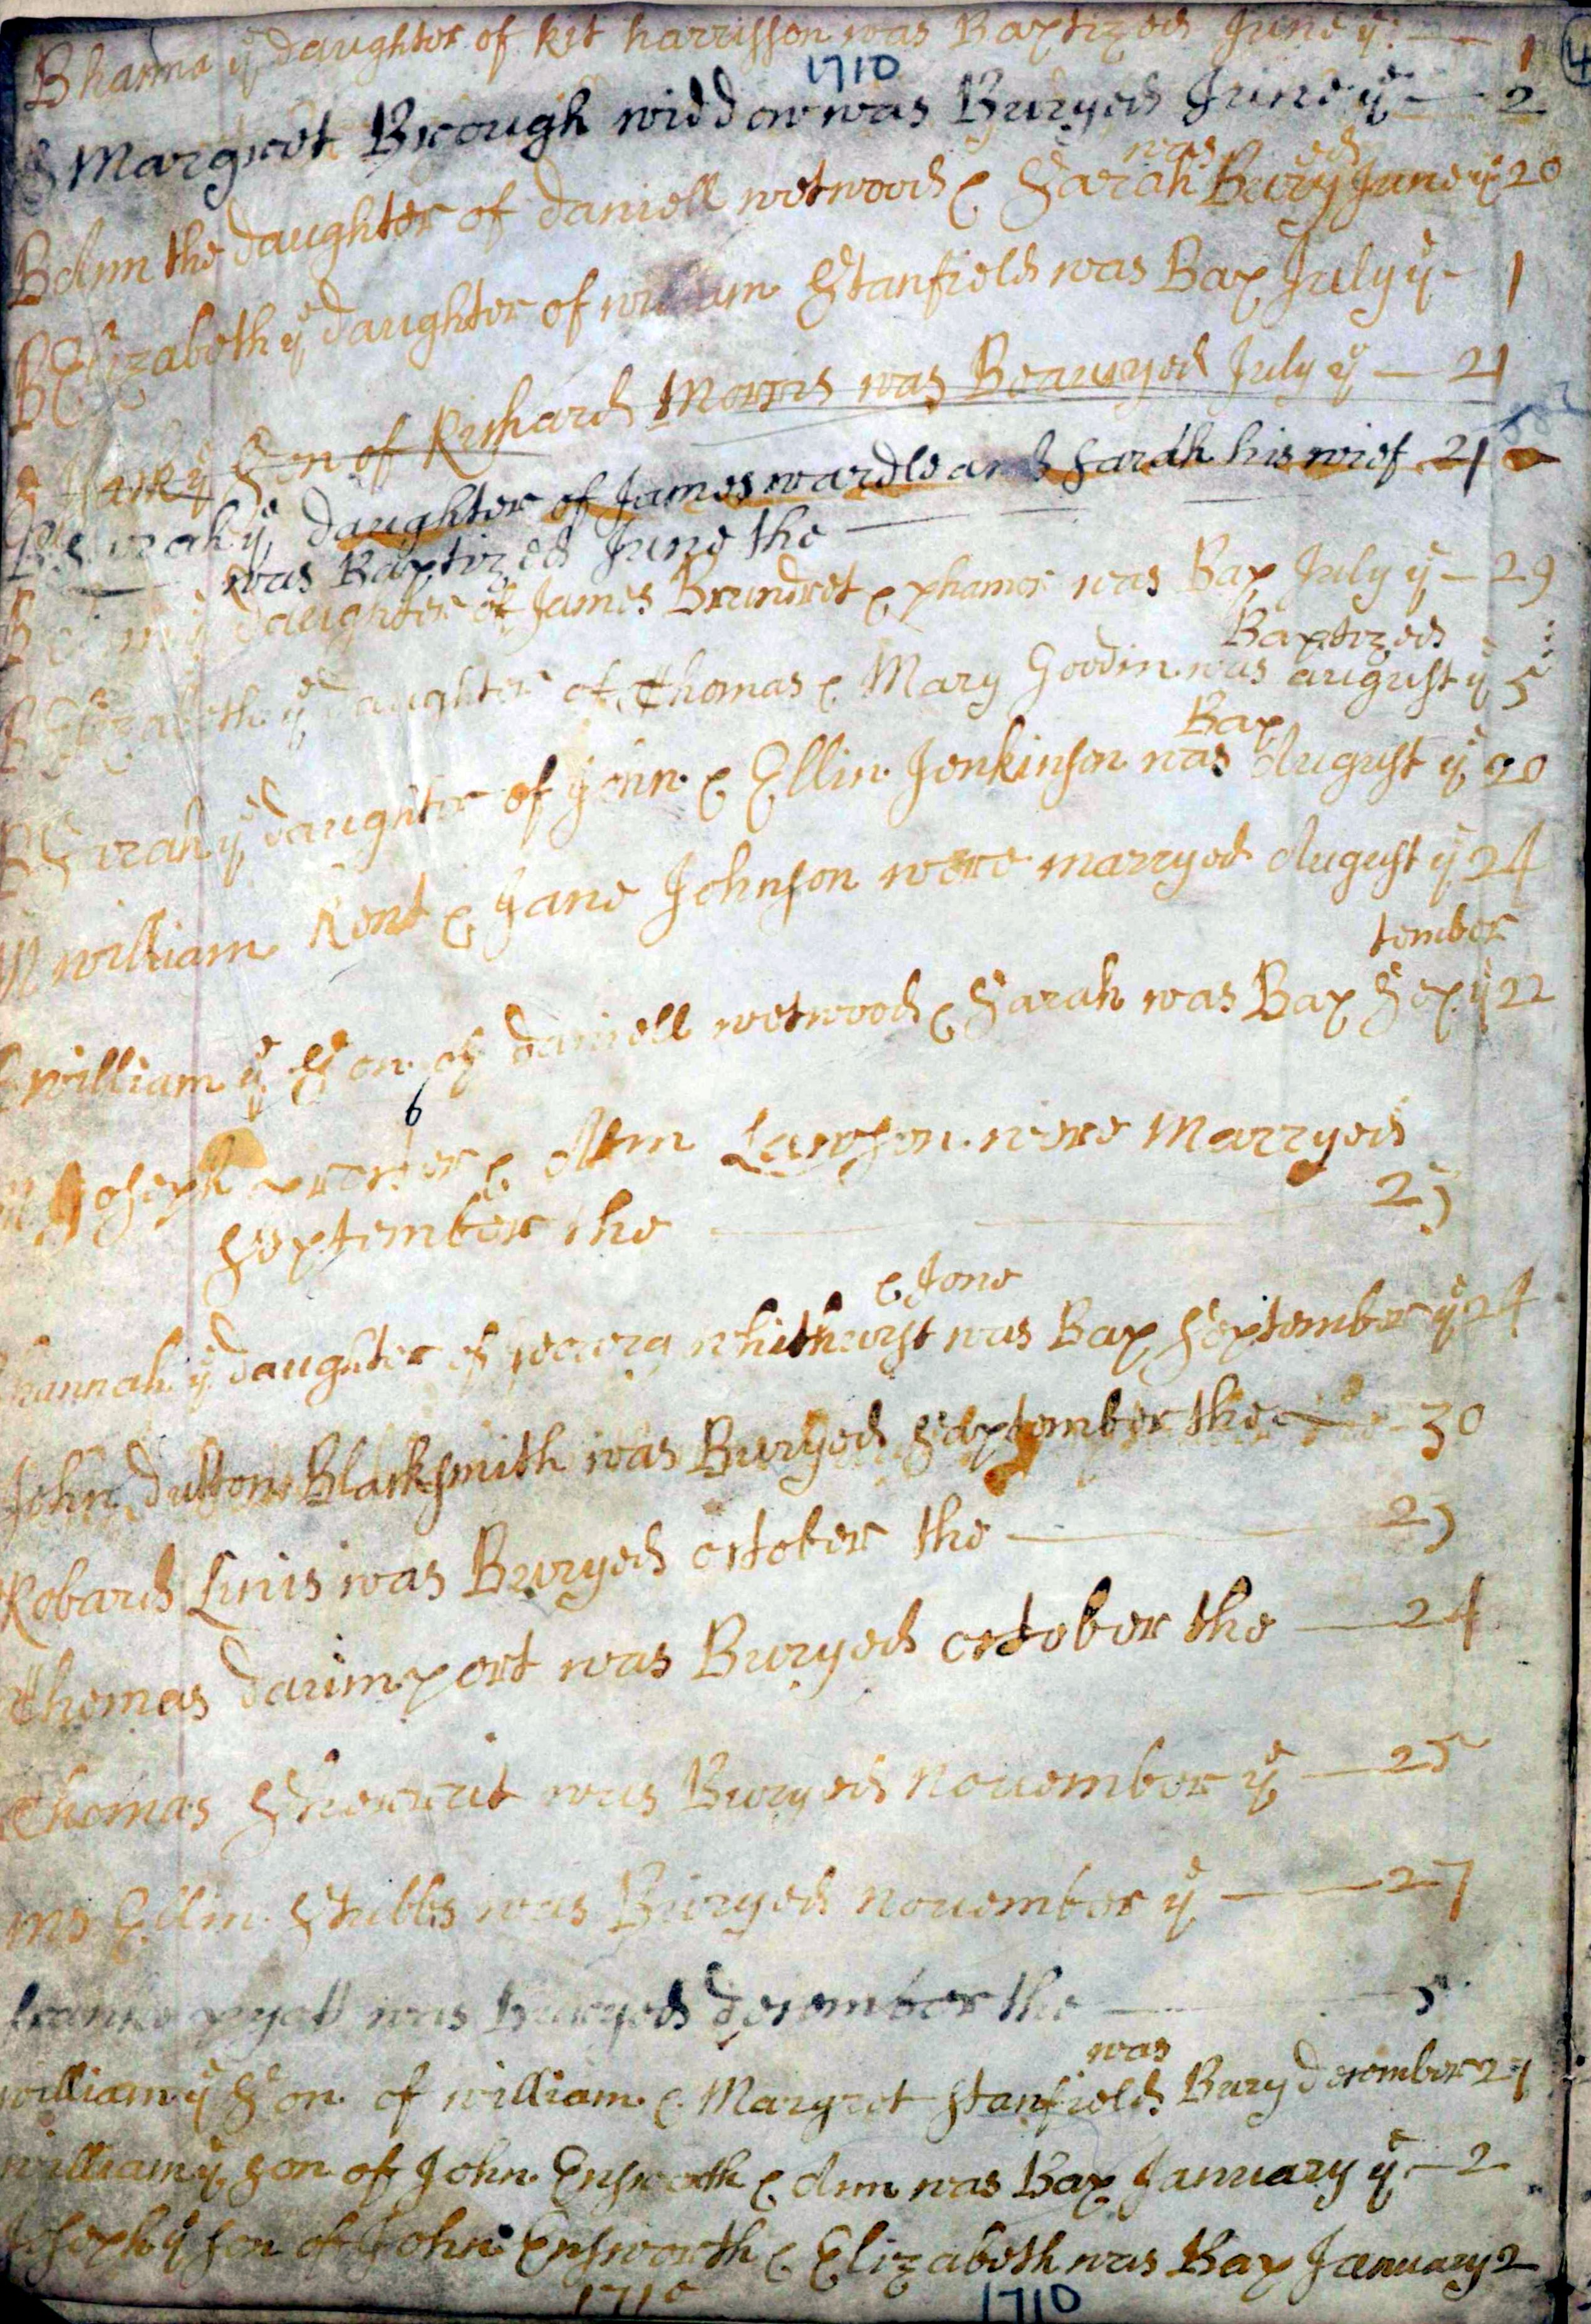 B hanna ye daughter of kit harrisson was Baptized June ye 1
1710
Margret Brough widdow was Buryed June ye 2
was ed
B Ann the daughter of daniell wetwood & Sarah Bury June ye 20
B Elizabeth ye daughter of william Stanfield was Bap July ye 1
ye Son of Richard Morris was Bearyed July ye 21
Sarah ye daughter of James wardle and Sarah his wief 21
was Baptized June the
daughter of James Brundret & was Bap July ye 29
Baptized
B Elizabeth ye daughter of Thomas & Mary Goodin was august ye 5
Bap
B Sarah ye daughter of John & Ellin Jenkinson was August ye 20
M william Kent & Jane Johnson were marryed August ye 24
tember
william ye Son of daniell wetwood & Sarah was Bap Sep ye 22
6
Joseph & Ann Lawson were Marryed
September the 25
& Jone
hannah ye daughter of whithurst was Bap September ye 24
John dutton Blacksmith was Buryed September the 30
Robard was Buryed october the 25
Thomas dauinport was Buryed october the 24
Thomas Sherrut was Buryed Nouember ye 25
Ellin Stubbs was Buryed Nouember ye 27
pyott was Buryed december the 5
was
william ye Son of william & Margret Stanfield Bury december 27
william ye son of John Ensworth & Ann was Bap January ye 2
Joseph ye son of John Ensworth & Elizabeth was Bap January 2
1710 1710